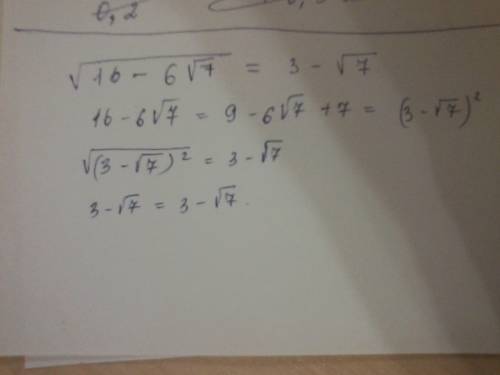 0,2
√(16 - 6√7) = 3 - √7
16 - 6√7 = 9 - 6√7 + 7 = (3 - √7)²
√((3 - √7)²) = 3 - √7
3 - √7 = 3 - √7.